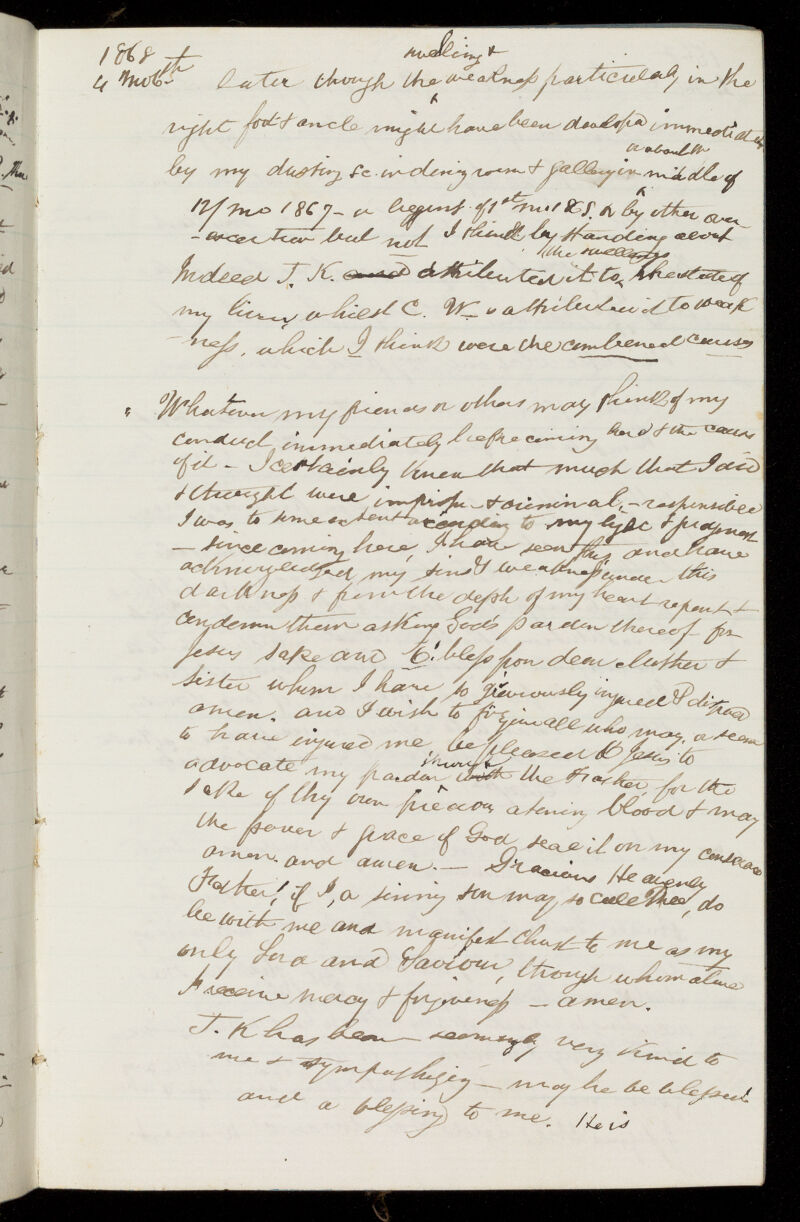 1868
4 Mo 6th
swelling &
later though the weakness particularly in the
right foot & ancle might have been developd immediately
or about the
by my dusting &c. in dining room & gallery in middle of
12/mo 1867 - or beging. of 1st mo 1868. or by other over
-exertion but not I think by standing about
the swelling
Indeed T. K. and attributed it to the state of
my liver, whilst C. W. attributed it to weak
-ness, which I think were the combined causes
" Whatever my friends or others may think of my
conduct immediately before coming here & the cause
of it - I certainly knew that much that I did
& thought were improper & criminal, - responsible
I was to some extent according to my light & judgment
- since coming here, I have seen this and have
acknowledged my sins & weakness under this
darkness & from the depth of my heart repent &
condemn them asking God's pardon thereof for
Jesus sake and O! bless poor dear Mother &
sister whom I have so grieviously injured &
amen. and I wish to forgive all who may, or seem
to have injured me, be pleased O Jesus to
through
advocate my pardon with the Father, for the
sake of thy own precious atoning blood & may
the power & grace of God seal it on my conscience
amen. and amen. - Gracious Heavenly
Father! if I, a sinning son may so call Thee, do
be with me and manifest Christ to me as my
only Lord and Saviour, through whom alone
I receive mercy & forgiveness - amen.
T. K has been seemingly very kind to
me & sympathizing - may he be blessed
and a blessing to me. He is